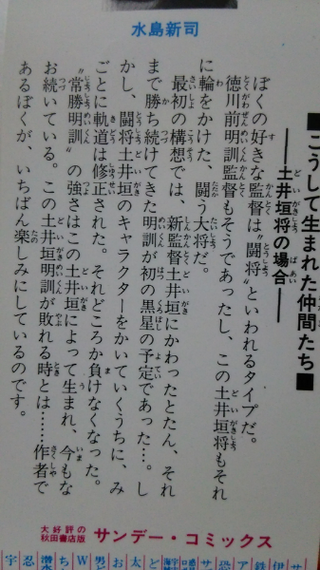 水島新司
■こうして生まれた仲間たち■
──土井垣将の場合──
ぼくの好きな監督は〝闘将〟といわれるタイプだ。
徳川前明訓監督もそうであったし、この土井垣将もそれ
に輪をかけた、闘う大将だ。
最初の構想では、新監督土井垣にかわったとたん、それ
まで勝ち続けてきた明訓が初の黒星の予定であった…。し
かし、闘将土井垣のキャラクターをかいていくうちに、み
ごとに軌道は修正された。それどころか負けなくなった。
〝常勝明訓〟の強さはこの土井垣によって生まれ、今もな
お続いている。この土井垣明訓が敗れる時とは……作者で
あるぼくが、いちばん楽しみにしているのです。
大好評の
秋田書店版
サンデー・コミックス